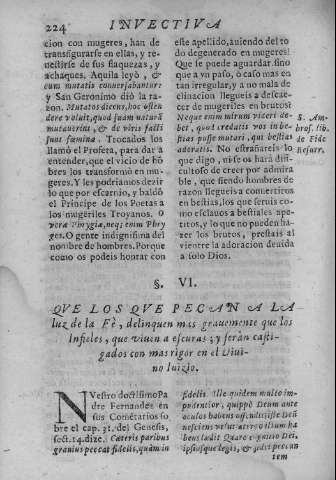 224
INVECTIVA
cion con mugeres, han de
transfigurarse en ellas, y re-
uestirse de sus flaquezas, y
achaques. Aquila leyò, &
cum mutatis conuersabantur:
y San Geronimo diò la ra-
zon. Mutatos dicens, hoc osten
dere voluit, quod suam naturã
mutauerint, & de viris facti
sunt fœmina. Trocados los
llamò el Profeta, para dar à
entender, que el vicio de hõ
bres los transformò en mu-
geres. Y les podriamos dezir
lo que por escarnio, y baldõ
el Principe de los Poetas a
los mugeriles Troyanos. O
vera Phrygiæ, neq; enim Phry
ges. O gente indignissima del
nombre de hombres. Porque
como os podeis honrar con
este apellido, auiendo del to
do degenerado en mugeres!
Que se puede aguardar, sino
que a vn paso, ò caso mas en
tan irregular, y a no mala de
clinacion llegueis a desaecer
de mugeriles en brutos!
Neque enim mirum videri de-
bet, quod credatis vos in be-
stias posse mutari, qui bestias
adoratis. No estrañareis lo
que digo, ni se os harà difi-
cultoso de creer por admira
ble, que siendo hombres de
razon llegueis a convertiros
en bestias, los que seruis co-
mo esclauos a bestiales ape-
titos, y lo que no pueden ha-
zer los brutos, prestais al
vientre la adoracion deuida
a solo Dios.
S. Am-
brof. lib.
de Fide
Resurr.
§. VI.
QUE LOS QUE PECAN A LA
luz de la Fè, delinquen mas grauemente que los
Infieles, que viuen a escuras; y seràn casti-
gados con mas rigor en el Diui-
no iuizio.
NVestro doctissimo Pa
dre Fernandes en
sus Comẽtarios so
bre el cap. 31. del Genesis,
sect. 14. dize. Cæteris paribus
grauius peccat fidelis, quàm in
fidelis. Ille quidem multo im-
pudentior, quippè Deum ante
oculos habens offendit; iste Deũ
nesciens veluti alterius oculum ha
bens ludit. Quare cognitio Dei,
ipsiusque legis, & gladi peccan
tem